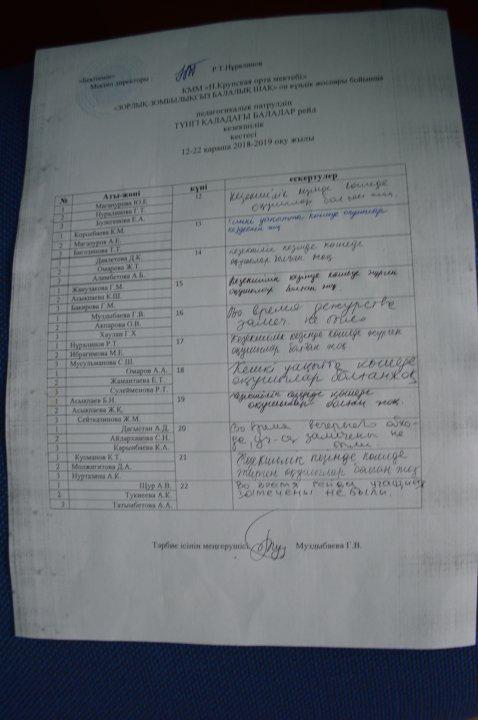 «Бекітемін»
Мектеп директоры Р.Т.Нұралинов
КММ «Н.Крупская орта мектебі»
«ЗОРЛЫҚ-ЗОМБЫЛЫҚСЫЗ БАЛАЛЫҚ ШАК» он күндік жоспары бойынша
педагогикалық патрулдің
ТҮНГІ ҚАЛАДАҒЫ БАЛАЛАР рейд
кезекшілік
кестесі
12-22 қараша 2018-2019 оқу жылы
№ Аты-жөні күні ескертулер
1 Магзумова Ю.Е. 12 Кезекшілік кезінде көшеде
2 Нуралинова Г.Т. оқушылар болған жоқ.
3 Бузкенова Е.А.
1 Корсабаева К.М. 13 уақытта көшеде оқушылар
2 Магзумов А.Е. кездескен жоқ
3 Баголинова Т.Т.
1 Давлетова Д.К. 14 кезекшілік кезінде көшеде
2 Омарова Ж.Т. оқушылар болған жоқ
3 Алимбетова А.Б.
1 Жанузакова Г.М. 15 Кезекшілік кезінде көшеде жүрген
2 Асыкпаева К.Ш. оқушылар болған жоқ
3 Бакирова Г.М.
1 Муздыбаева Г.В. 16 Во время дежурства
2 Акпарова О.В. замеч. не было
3 Хаулан Г.Х
1 Нуралинов Р.Т. 17 Кезекшілік кезінде көшеде жүрген
2 Ибрагимова М.Е. оқушылар болған жоқ
3 Мусульманова С.Ш.
1 Омаров А.А. 18 Кешкі уақытта көшеде
2 Жамантаева Е.Т. оқушылар болған жоқ
3 Сулейменова Р.Т.
1 Асыкпаев Б.Н. 19 кезекшілік кезінде көшеде
2 Асыкпаева Ж.К. оқушылар болған жоқ.
3 Сейтказинова Ж.М.
1 Дагметан А.Д. 20 Во время вечернего обхо-
2 Айдарханова С.Н. да уч-ся замечены не
3 Карымбаева К.А. были.
1 Кусманов К.Т. 21 Кезекшілік кезінде көшеде
2 Молжигитова Д.А. жүрген оқушылар болған жоқ
3 Нуртазина А.К.
1 Щур А.В. 22 Во время рейда учащиеся
2 Тукиеева А.К. замечены не были.
3 Татымбетова А.А.
Тәрбие ісінің меңгерушісі Муздыбаева Г.В.